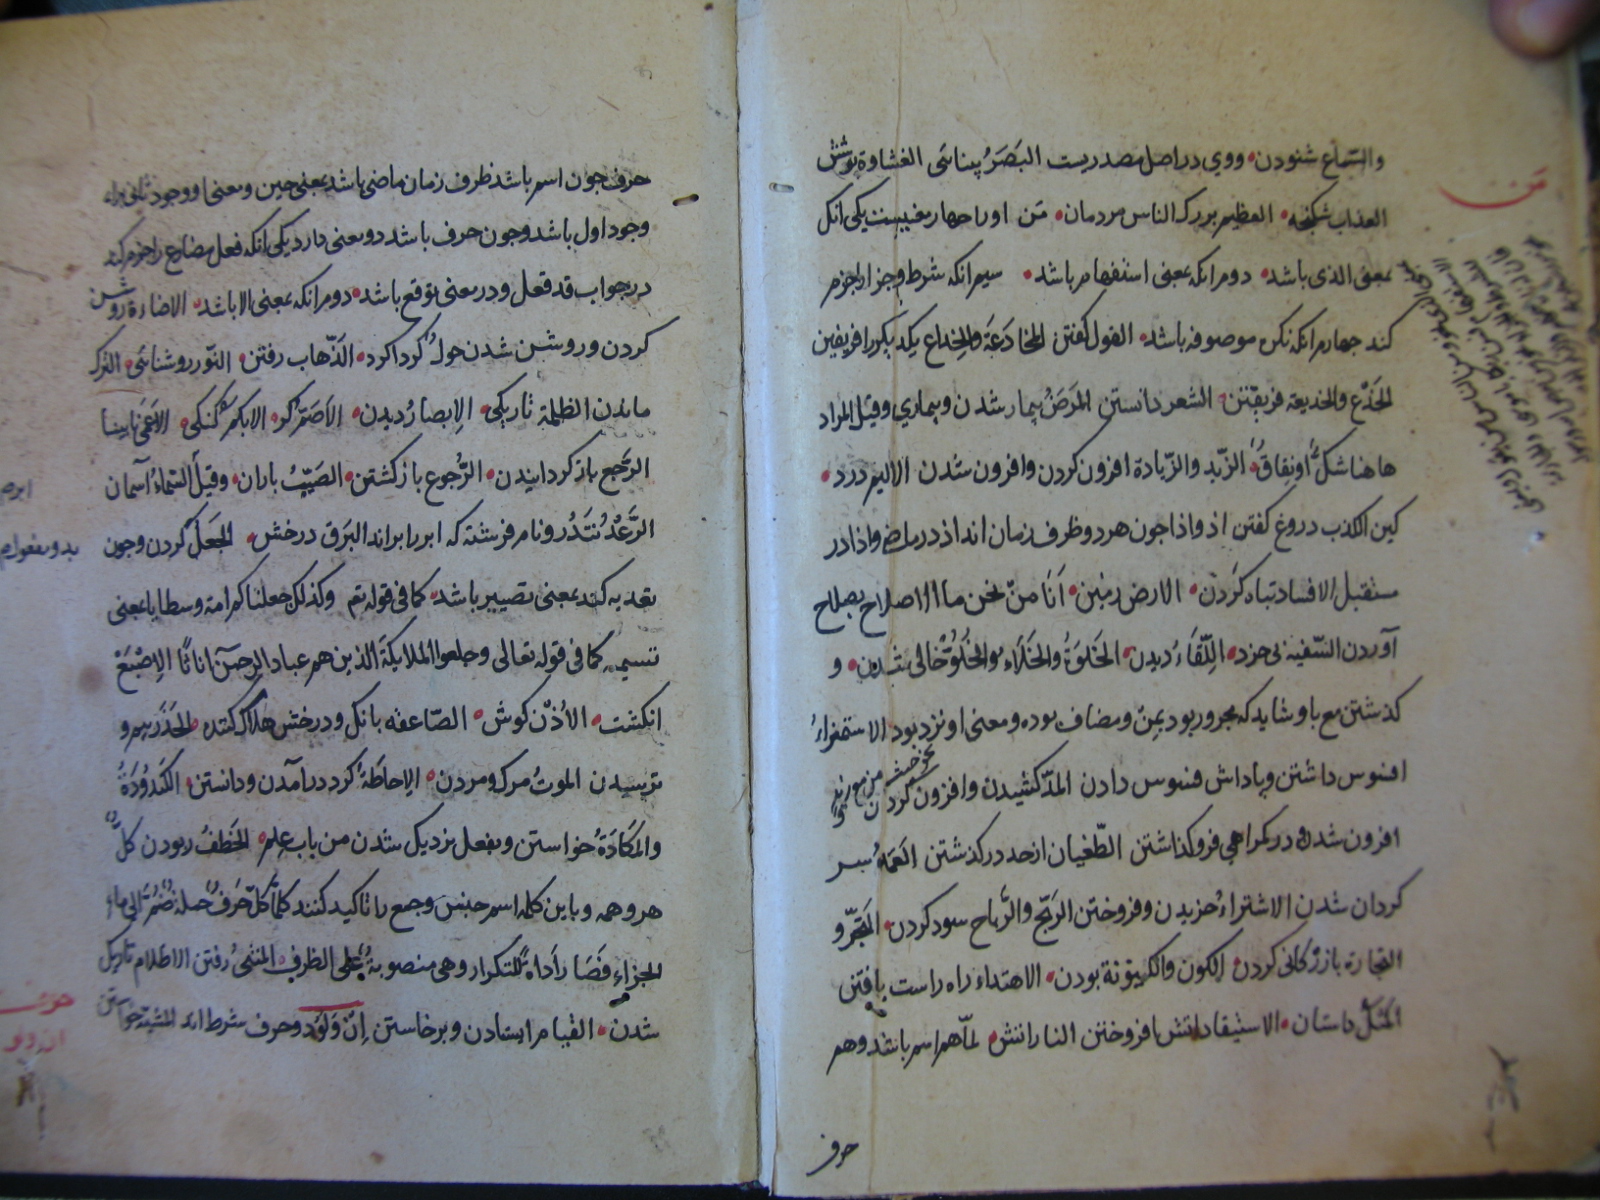 والسّماع شنودن • ووی در اصل مصدریست البَصَرُ بینائی الغشاوة پوشش
العذاب شکنجه • العظیم بزرک الناس مردمان • مَن اورا چهار معنیست یکی انک
بمعنی الذی باشد • دوم انکه بمعنی استفهام باشد • سیم انکه شرط وجزا را جزم
کند چهارم انکه نکره موصوفه باشد • القول کفتن المخادَعَة والخِداع یکدیکر را فریفتن
الخَدْع والخدیعه فریفتن • الشعر دانستن المَرَضُ بیمار شدن وبیماری وقیل المراد
هاهنا شکٌّ او نِفاقٌ • الزّید والزّیادة افزون کردن وافزون شدن الالیم درد •
کین الکذب دروغ کفتن اذ واذا چون هر دو ظرف زمان اند اذ در ماضی واذا در
مستقبل الافساد تباه کردن • الارض زمین • اَنَا منْ نحن ما الاصلاح بصلاح
آوردن السّفیه بی خرد • اللِّقَاءُ دیدن • الخَلوَةُ والخَلَاء والخُلُوّ خالی شدن • و
کذشتن مع با وشاید که مجرور بود بمِنْ ومضاف بوده ومعنی او نزد بود الاستهزاءُ
افسوس داشتن وپاداش فسوس دادن المدّ کشیدن وافزون کردن
افزون شدن ودر کمراهی فرو کذاشتن الطّغیان از حد در کذشتن العَمَهُ سر
کردان شدن الاشتراءُ خریدن وفروختن الرَبَح والرَّباح سود کردن • المَتجَرُ و
التجارة بازرکانی کردن • الکون والکینونة بودن • الاهتداء راه راست یافتن
المَثَل داستان • الاستیقاد اتش افروختن النار اتش • لمّا هم اسم باشد وهم
حرف
مَن
حرف چون اسم باشد ظرف زمان ماضی باشد بمعنی حین ومعنی او وجود ثانی برای
وجود اول باشد وچون حرف باشد دو معنی دارد یکی انکه فعل مضارع را جزم کند
در جواب قد فعل ودر معنی توقع باشد • دوم انکه بمعنی الا باشد • الاضاءة روشن
کردن وروشن شدن حولُ کرداکرد • الذّهاب رفتن • النّور روشنائی • الترک
ماندن الظلمة تاریکی • الاِبصارُ دیدن • الاَصَمّ کر • الابکم کنکی • الاَعْمَی نابینا
الرّجع باز کردانیدن • الرُّجوع باز کشتن • الصَیّبُ باران • وقیل السّماءُ آسمان
الرَّعْدُ تُنْدُر ونام فرشته که ابر را براند البَرق درخش • الجَعَلُ کردن وچون
تعدیه کند بمعنی تصییر باشد • کما فی قوله تع وکذلک جعلناکم امة وسطا یا بمعنی
تسمیه کما فی قوله تعالی وجعلوا الملایکَة الّذین هم عباد الرحمن اناثًا الاِصْبَعْ
انکشت • الاُذْن کوش • الصّاعقه بانک ودرخش هلاک کننده • الحَذَر بیم و
ترسیدن الموتُ مرک ومردن • الاِحاطَةُ کرد درآمدن ودانستن • الکَیدُودَةُ
والمَکَادَةُ خواستن وبفعل نزدیک شدن من باب علم • الخَطْفُ ربودن کلٌّ
هر وهمه وباین کلمه اسم جنس وجمع را تاکید کنند کلمّا کلّ حَرف جملةٍ ضُمَّ الی ما
الجزاء فَصَارَ اَداةً للتکرار وهی منصوبةٌ علی الظرف • المَشیُ رفتن الاظلام تاریک
شدن • القیام ایستادن وبرخاستن اِنْ وَلَوْ دو حرف شرط اند المشیّة خواستن